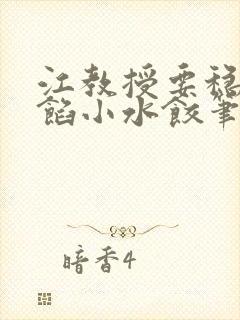 江教授要稳
馅小水饺笔
暗香4